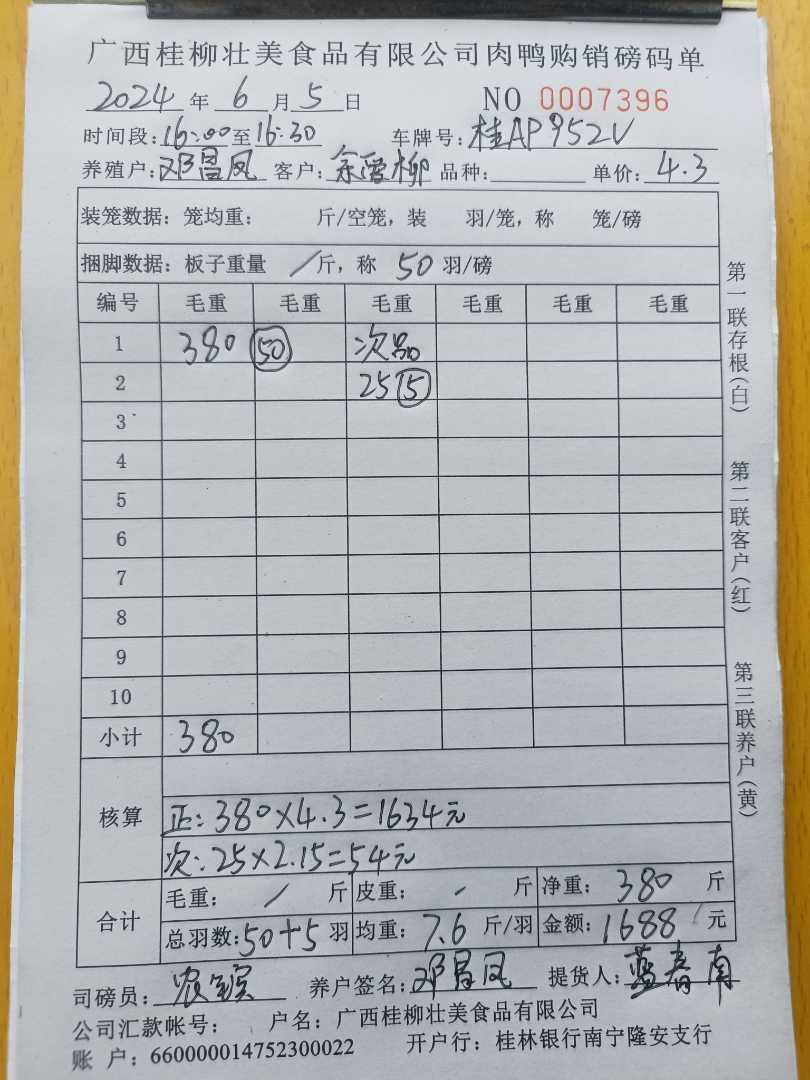 广西桂柳壮美食品有限公司肉鸭购销磅码单
2024 年 6 月 5 日 NO 0007396
时间段: 16:00 至 16:30 车牌号: 桂AP952V
养殖户: 邓昌凤 客户: 余 柳 品种: 单价: 4.3
装笼数据: 笼均重: 斤/空笼, 装 羽/笼, 称 笼/磅
捆脚数据: 板子重量 / 斤, 称 50 羽/磅
编号 毛重 毛重 毛重 毛重 毛重 毛重
1 380 50 次品
2 25 5
3
4
5
6
7
8
9
10
小计 380
核算
正: 380×4.3=1634元
次: 25×2.15=54元
合计
毛重: / 斤 皮重: - 斤 净重: 380 斤
总羽数: 50+5 羽 均重: 7.6 斤/羽 金额: 1688 元
司磅员: 农 养户签名: 邓昌凤 提货人: 蓝春南
公司汇款帐号: 户名: 广西桂柳壮美食品有限公司
账 户: 660000014752300022 开户行: 桂林银行南宁隆安支行
第一联存根(白)
第二联客户(红)
第三联养户(黄)